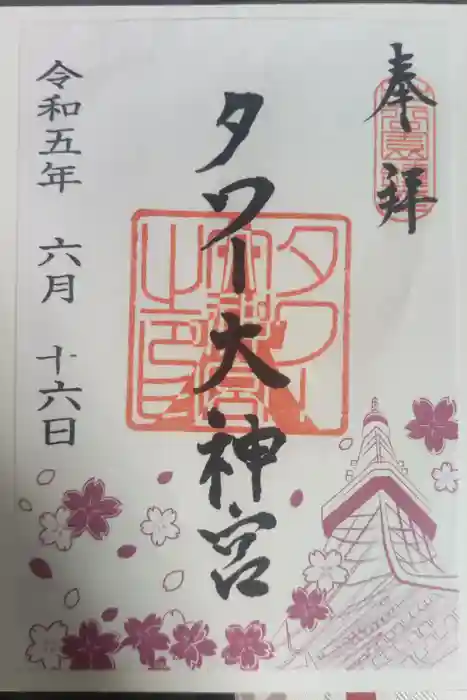 奉拝
タワー大神宮
令和五年 六月 十六日